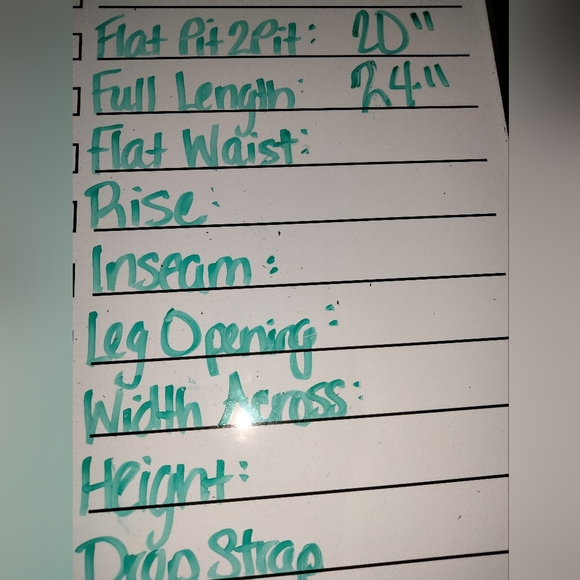 Flat Pit2Pit: 20"
Full Length: 24"
Flat Waist:
Rise:
Inseam:
Leg Opening:
Width Across:
Height:
Drop Strap